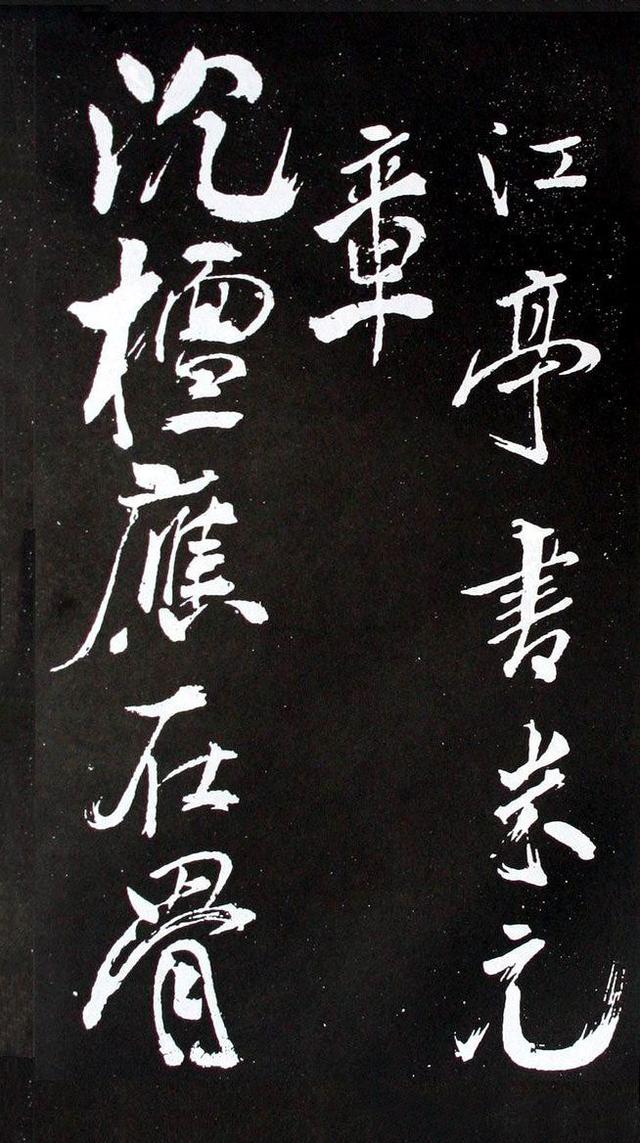 江亭書崇元
章
沉檀應在骨